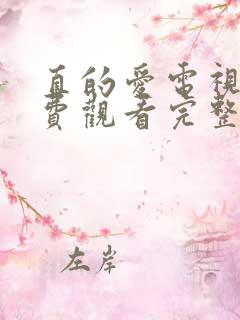 真的愛電視
費觀看完整
左岸